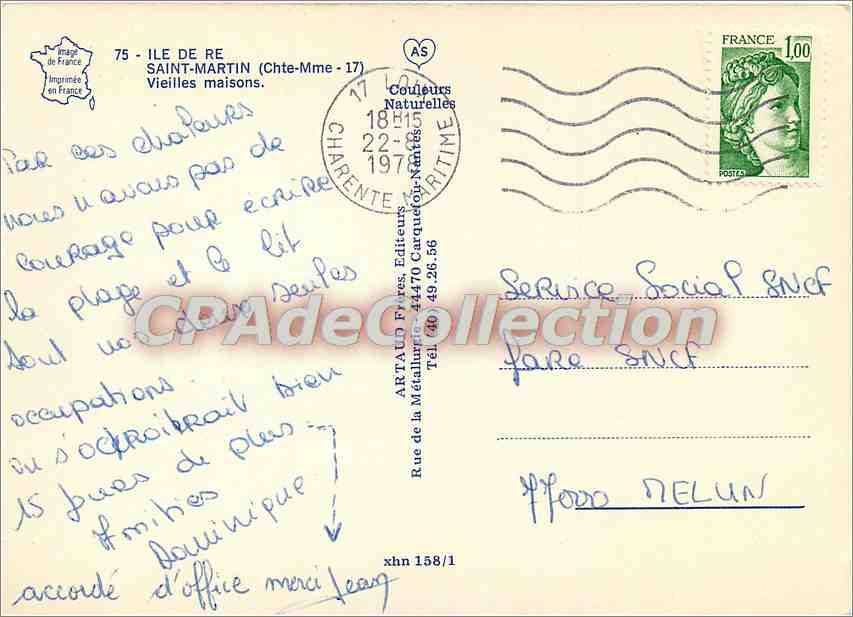 Image
de France
Imprimée
en France
75 - ILE DE RE
SAINT-MARTIN (Chte-Mme - 17)
Vieilles maisons.
AS
Couleurs
Naturelles
17 LOIX
18H15
22-8
1978
CHARENTE MARITIME
FRANCE 1,00
POSTES
Par ces chaleurs
nous n'avons pas de
courage pour écrire
la plage et le lit
sont nos deux seules
occupations.
on s'octroierait bien
15 jours de plus
Amitiés
Dominique
accordé d'office merci Jean
ARTAUD Frères, Editeurs
Rue de la Métallurgie - 44470 Carquefou-Nantes
Tél. (40) 49.26.56
xhn 158/1
Service Social SNCF
Gare SNCF
77000 MELUN
CPAdeCollection